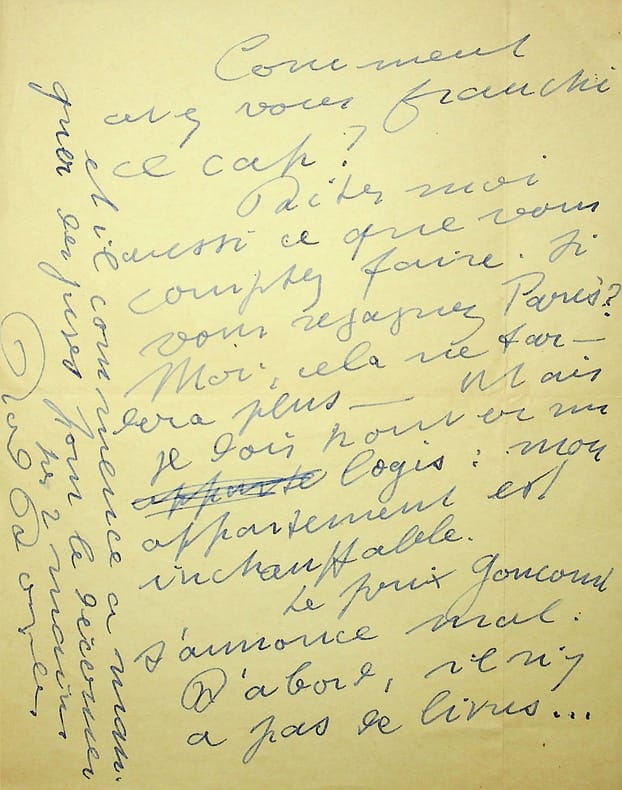 Comment
avez vous franchi
ce cap?
Dites moi
aussi ce que vous
comptez faire. Si
vous regagnez Paris?
Moi, cela ne tar-
dera plus — Mais
je dois trouver un
apparte logis : mon
appartement est
inchauffable.
Le prix Goncourt
s'annonce mal.
D'abord, il n'y
a pas de livres...
et il commence a man-
quer des juges pour le décerner